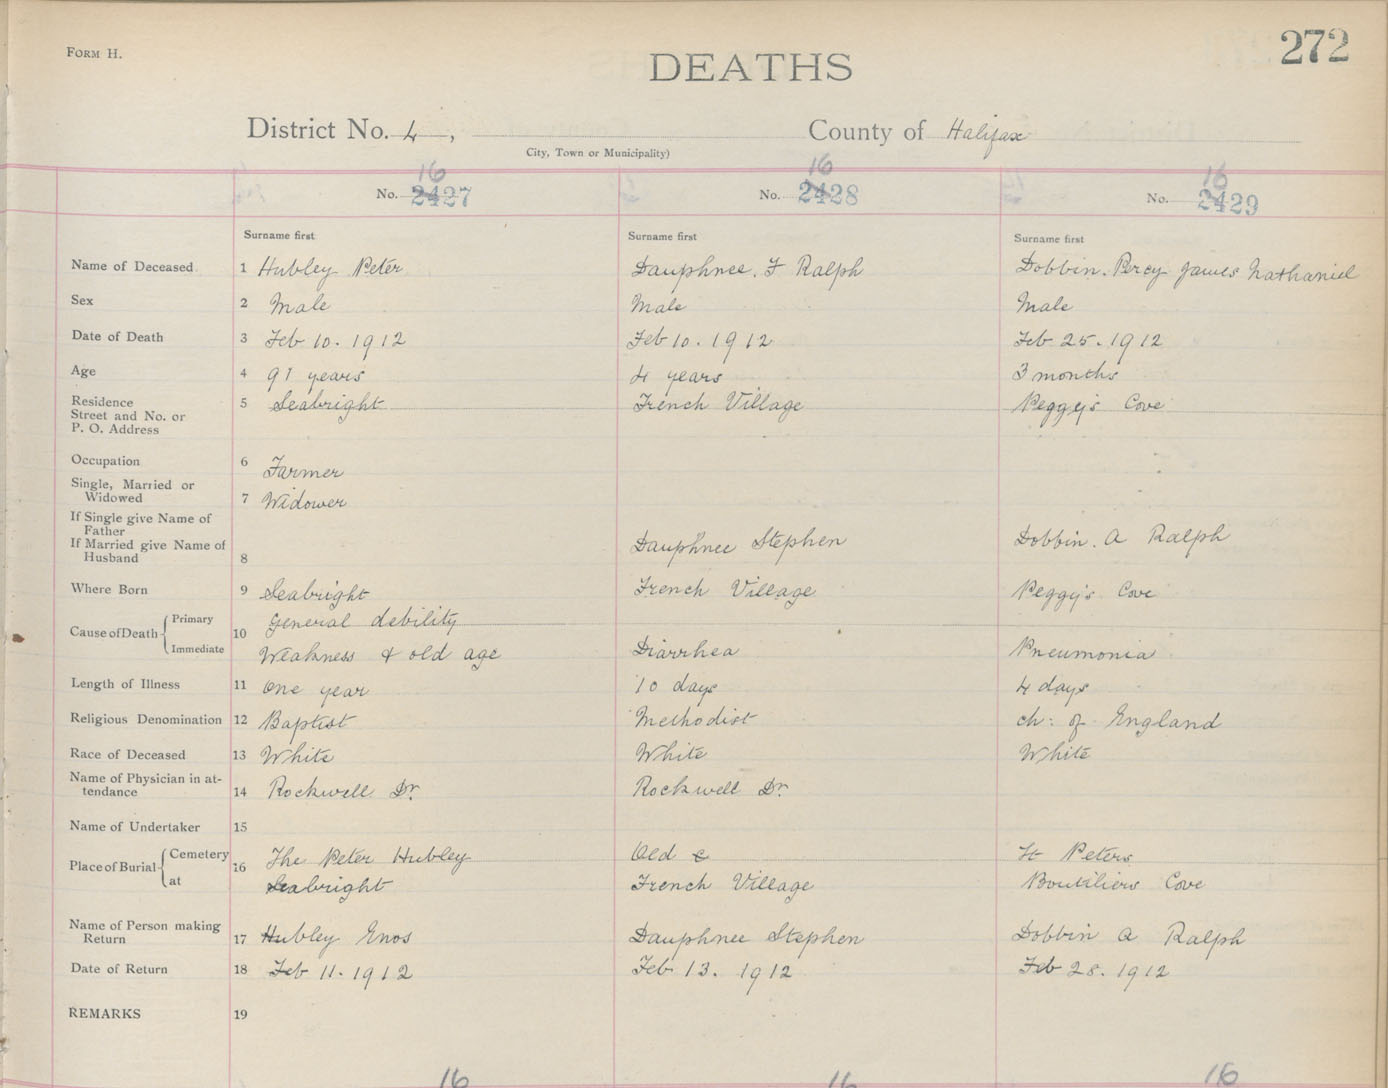 272
FORM H.
DEATHS
District No. 4, County of Halifax
City, Town or Municipality)
16 16 16
No. 2427 No. 2428 No. 2429
Surname first Surname first Surname first
Name of Deceased 1 Hubley Peter Dauphnee. F Ralph Dobbin. Percy James Nathaniel
Sex 2 Male Male Male
Date of Death 3 Feb 10. 1912 Feb 10. 1912 Feb 25. 1912
Age 4 91 years 4 years 3 months
Residence 5 Seabright French Village Peggy's Cove
Street and No. or
P. O. Address
Occupation 6 Farmer
Single, Married or
Widowed 7 Widower
If Single give Name of
Father
If Married give Name of Dauphnee Stephen Dobbin. A Ralph
Husband 8
Where Born 9 Seabright French Village Peggy's Cove
Primary General debility
Cause of Death 10
Immediate Weakness & old age Diarrhea Pneumonia
Length of Illness 11 One year 10 days 4 days
Religious Denomination 12 Baptist Methodist ch: of England
Race of Deceased 13 White White White
Name of Physician in at-
tendance 14 Rockwell Dr. Rockwell Dr.
Name of Undertaker 15
Cemetery The Peter Hubley Old C St Peters
Place of Burial 16
at Seabright French Village Boutiliers Cove
Name of Person making
Return 17 Hubley Enos Dauphnee Stephen Dobbin A Ralph
Date of Return 18 Feb 11. 1912 Feb 13. 1912 Feb 28. 1912
REMARKS 19
16 16 16